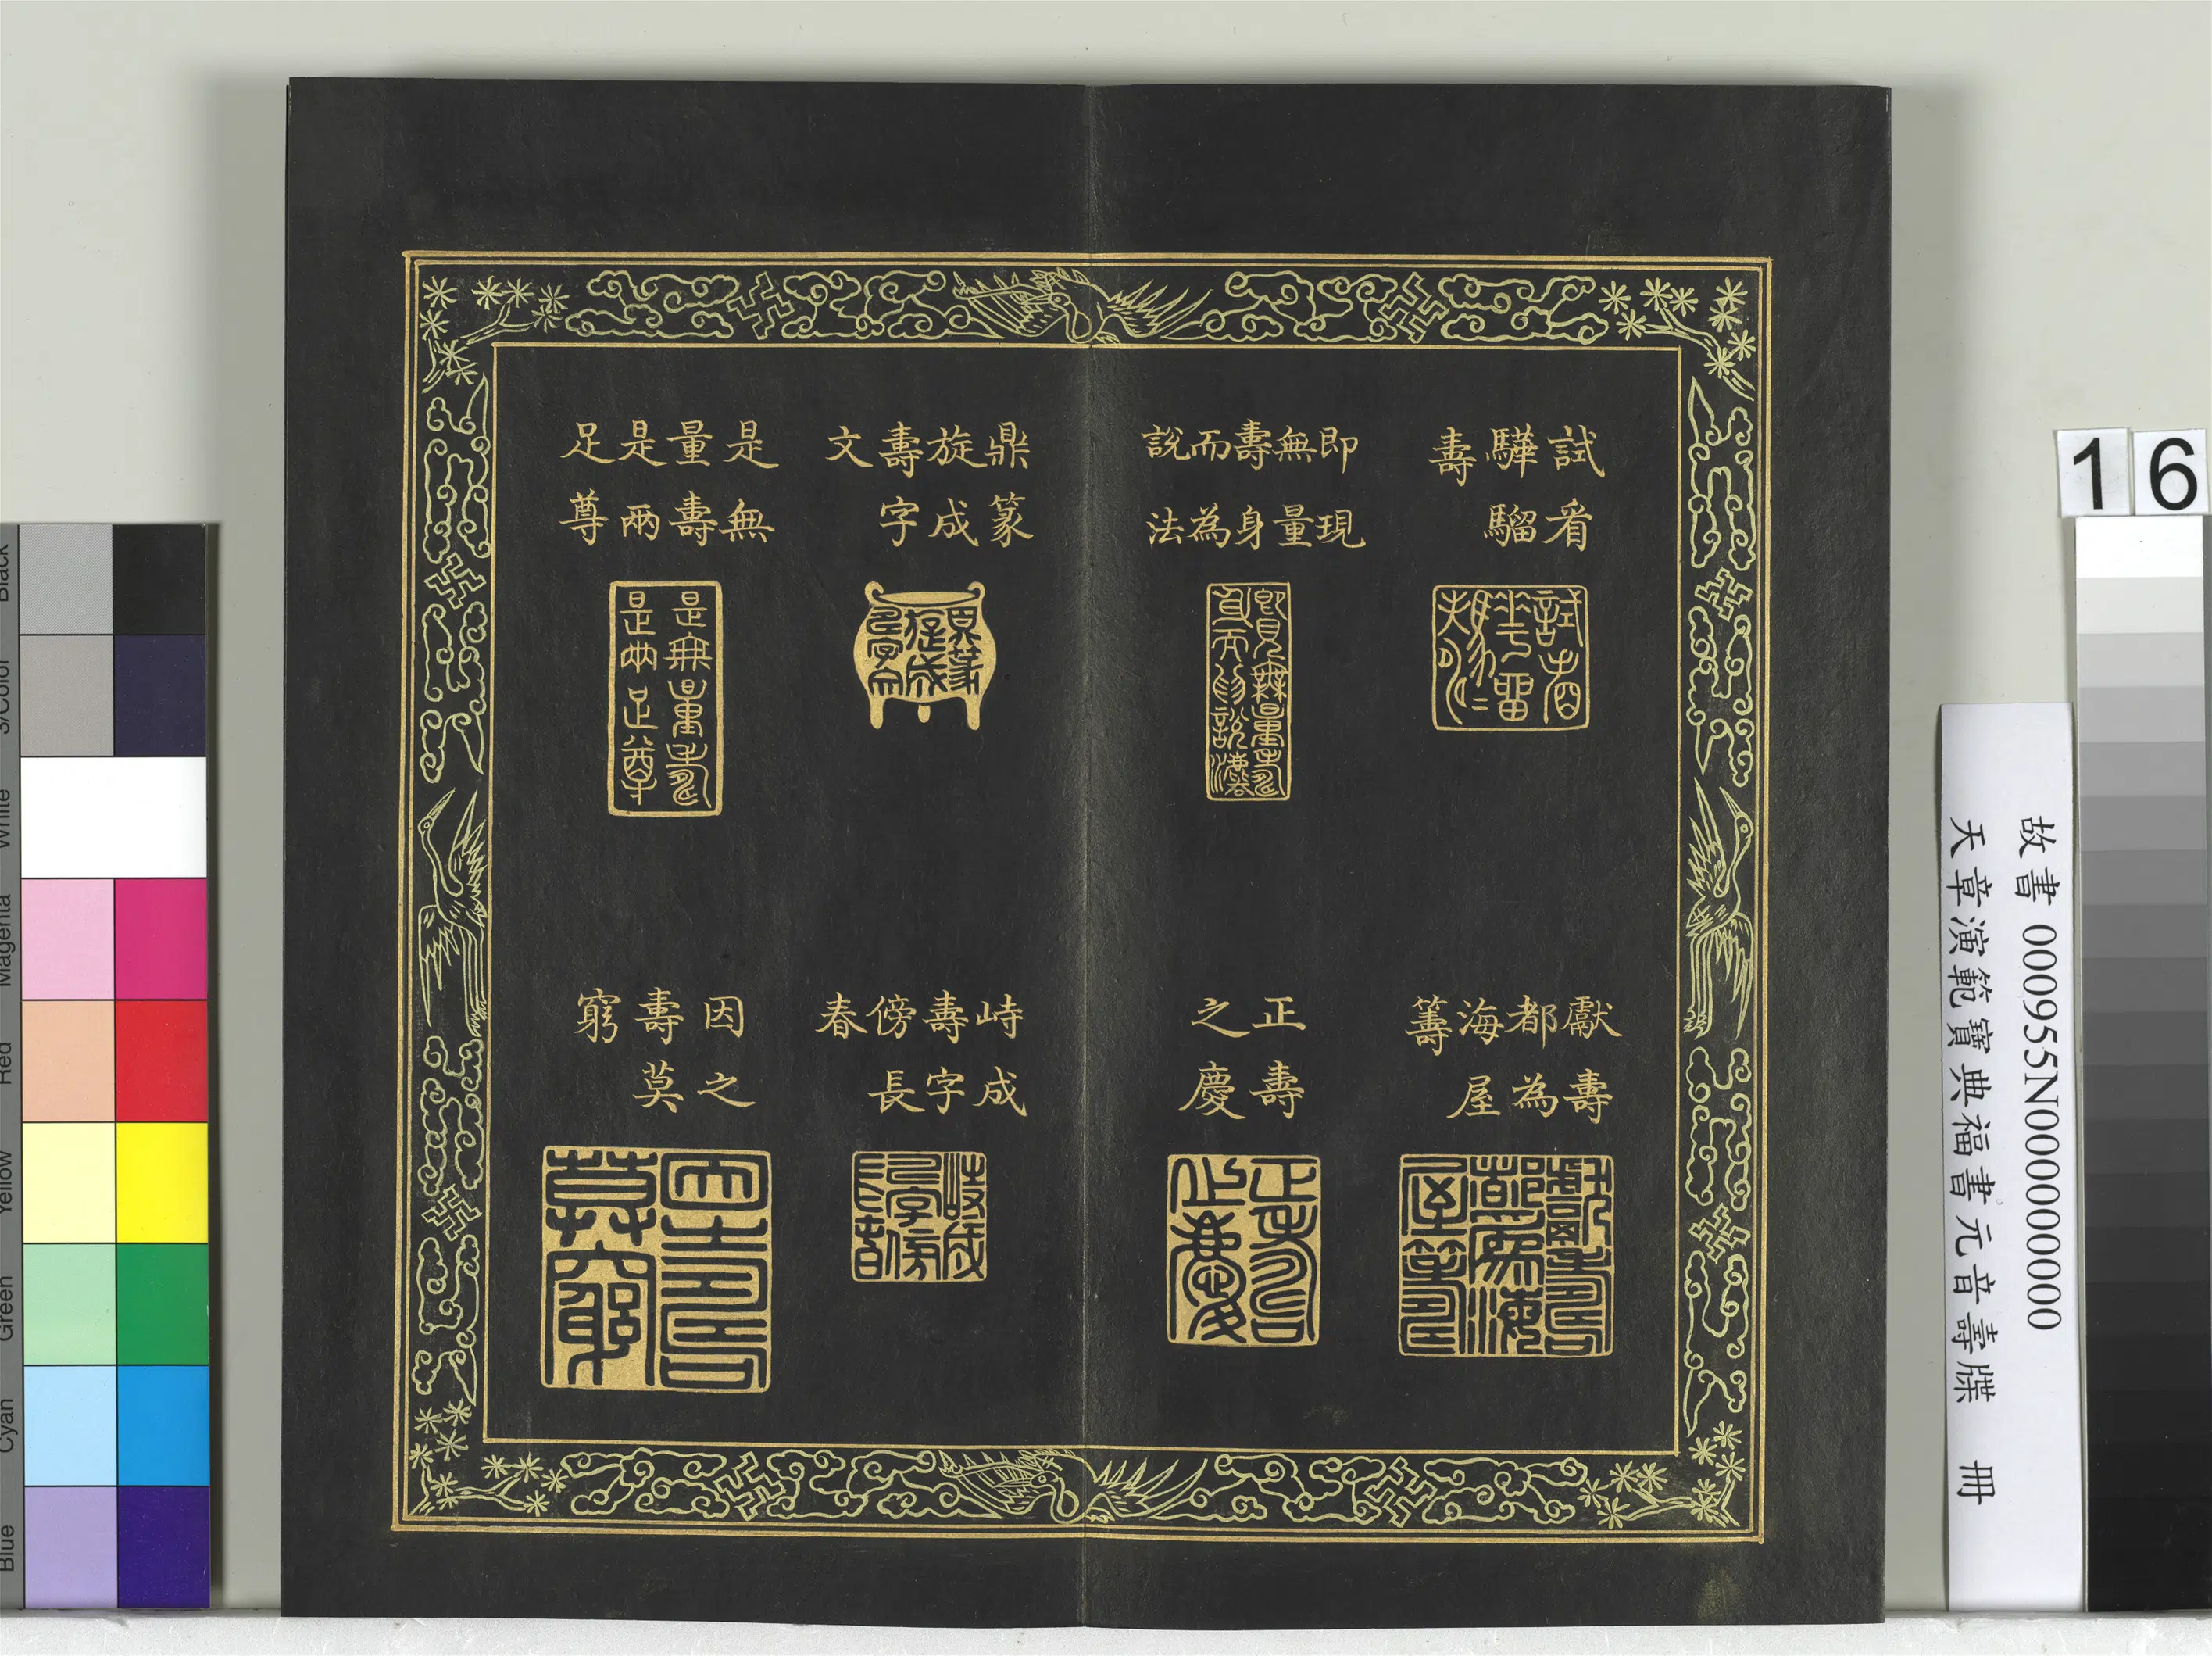 試看
驊騮
壽
即現
無量
壽身
而為
說法
鼎篆
旋成
壽字
文
是無
量壽
是兩
足尊
獻壽
都為
海屋
籌
正壽
之慶
峙成
壽字
傍長
春
因之
壽莫
窮
16
故書 000955N000000000
天章演範寶典福書元音壽牒 冊
Black
3/Color
White
Magenta
Red
Yellow
Green
Cyan
Blue